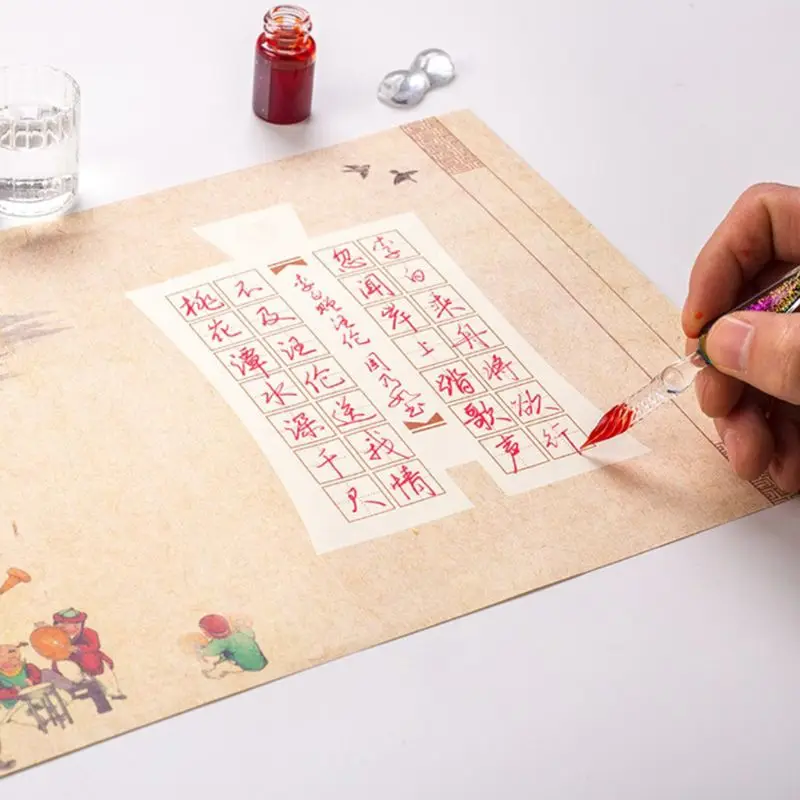 李白乘舟将欲行
忽闻岸上踏歌声
李白赠汪伦
不及汪伦送我情
桃花潭水深千尺